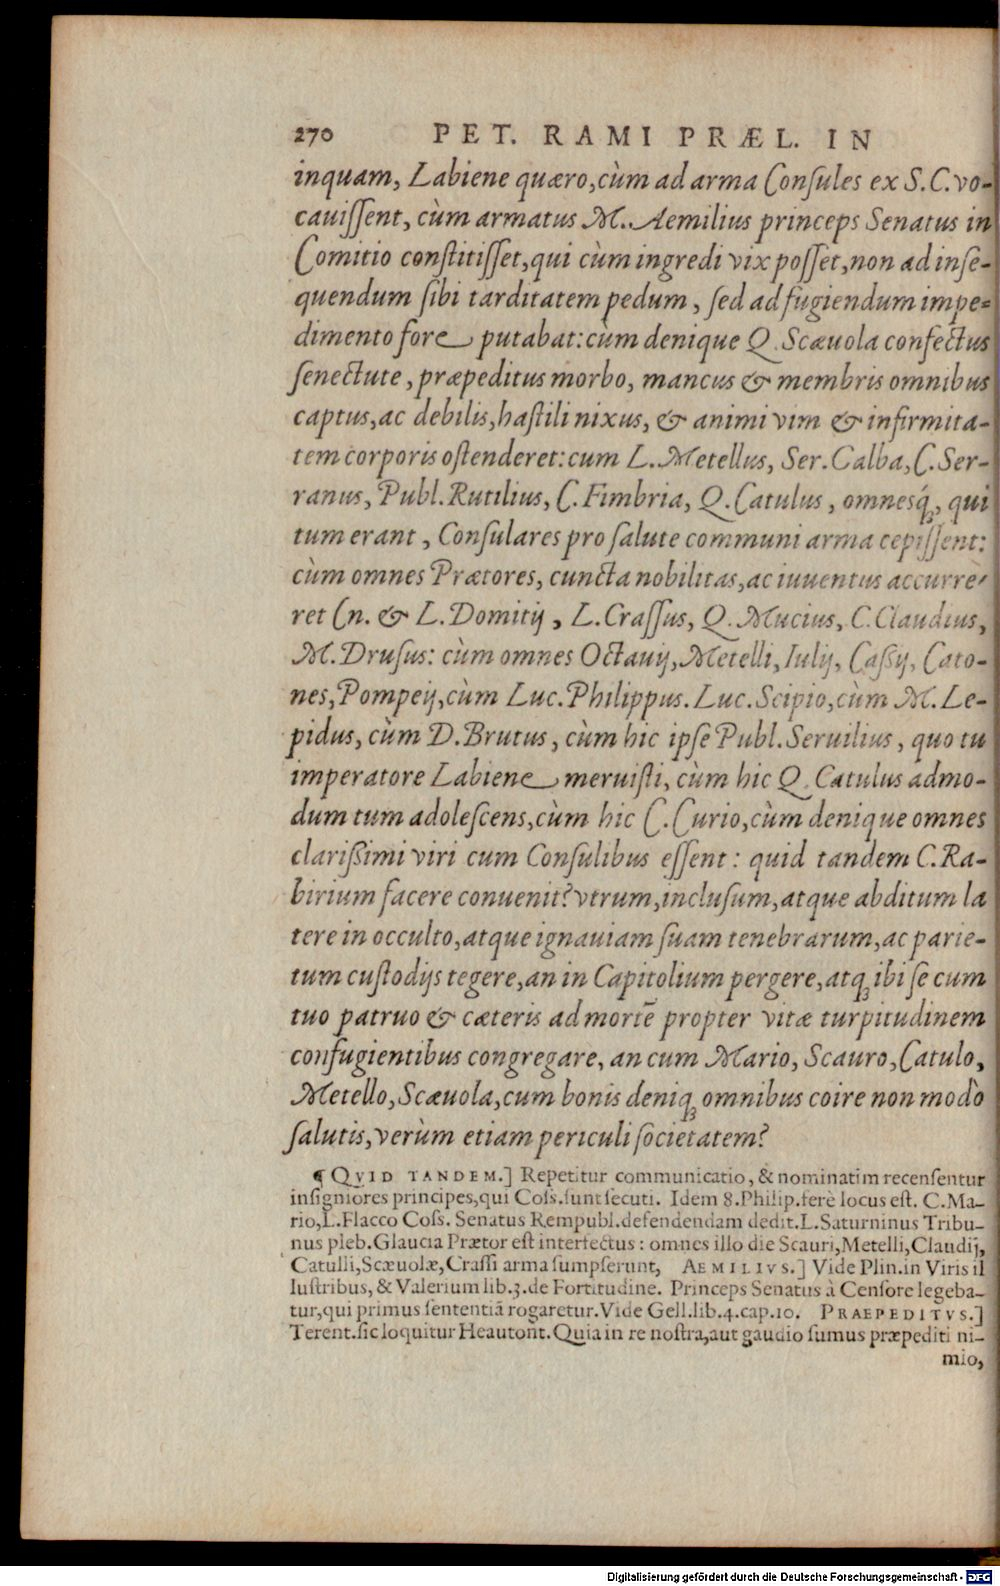 270 PET. RAMI PRÆL. IN
inquam, Labiene quæro, cùm ad arma Consules ex S.C. vo-
cauiſſent, cùm armatus M. Aemilius princeps Senatus in
Comitio conſtitiſſet, qui cùm ingredi vix poſſet, non ad inſe-
quendum ſibi tarditatem pedum, ſed ad fugiendum impe-
dimento fore putabat: cùm denique Q. Scæuola confectus
ſenectute, præpeditus morbo, mancus & membris omnibus
captus, ac debilis, haſtili nixus, & animi vim & infirmita-
tem corporis oſtenderet: cum L. Metellus, Ser. Galba, C. Ser-
ranus, Publ. Rutilius, C. Fimbria, Q. Catulus, omnesq́;, qui
tum erant, Conſulares pro ſalute communi arma cepiſſent:
cùm omnes Prætores, cuncta nobilitas, ac iuuentus accurre-
ret Cn. & L. Domitij, L. Craſſus, Q. Mucius, C. Claudius,
M. Druſus: cùm omnes Octauij, Metelli, Iulij, Caſſij, Cato-
nes, Pompeij, cùm Luc. Philippus. Luc. Scipio, cùm M. Le-
pidus, cùm D. Brutus, cùm hic ipſe Publ. Seruilius, quo tu
imperatore Labiene meruiſti, cùm hic Q. Catulus admo-
dum tum adoleſcens, cùm hic C. Curio, cùm denique omnes
clariſſimi viri cum Conſulibus eſſent: quid tandem C. Ra-
birium facere conuenit? vtrum, incluſum, atque abditum la
tere in occulto, atque ignauiam ſuam tenebrarum, ac parie-
tum cuſtodijs tegere, an in Capitolium pergere, atq; ibi ſe cum
tuo patruo & cæteris ad mortē propter vitæ turpitudinem
confugientibus congregare, an cum Mario, Scauro, Catulo,
Metello, Scæuola, cum bonis deniq; omnibus coire non modò
ſalutis, verùm etiam periculi ſocietatem?
¶ QVID TANDEM.] Repetitur communicatio, & nominatim recenſentur
inſigniores principes, qui Coſſ. ſunt ſecuti. Idem 8. Philip. ferè locus eſt. C. Ma-
rio, L. Flacco Coſſ. Senatus Rempubl. defendendam dedit. L. Saturninus Tribu-
nus pleb. Glaucia Prætor eſt interfectus: omnes illo die Scauri, Metelli, Claudij,
Catulli, Scæuolæ, Craſſi arma ſumpſerunt, AEMILIVS.] Vide Plin. in Viris il
luſtribus, & Valerium lib. 3. de Fortitudine. Princeps Senatus à Cenſore legeba-
tur, qui primus ſententiā rogaretur. Vide Gell. lib. 4. cap. 10. PRAEPEDITVS.]
Terent. ſic loquitur Heautont. Quia in re noſtra, aut gaudio ſumus præpediti ni-
mio,
Digitalisierung gefördert durch die Deutsche Forschungsgemeinschaft - DFG